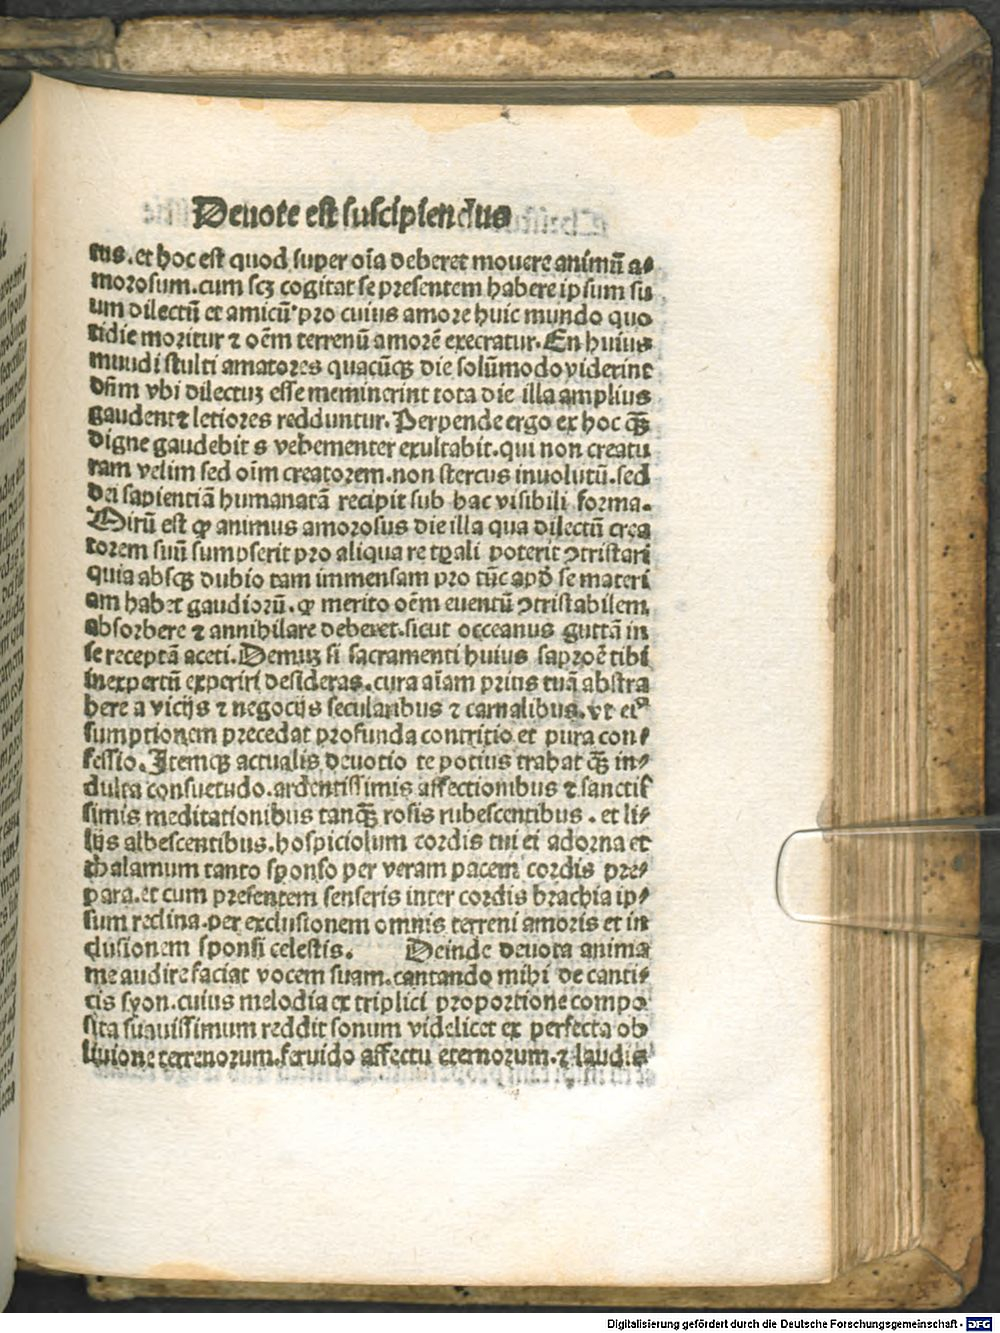 Deuote est suscipiendus
tus. et hoc est quod super oīa deberet mouere animū a⸗
morosum. cum scꝫ cogitat se presentem habere ipsum su
um dilectū et amicū pro cuius amore huic mundo quo
tidie moritur ⁊ oēm terrenū amorē execratur. En huius
mundi stulti amatores quacūqꝫ die solūmodo viderint
vbi dilectuꝫ esse meminerint tota die illa amplius
gaudent ⁊ letiores redduntur. Perpende ergo ex hoc qꝫ̄
digne gaudebit ⁊ vehementer exultabit. qui non creatu
ram velim sed oīm creatorem. non stercus inuolutū. sed
dei sapientiā humanatā recipit sub hac visibili forma.
Mirū est ꝙ animus amorosus die illa qua dilectū crea
torem suū sumpserit pro aliqua re tꝑali poterit ꝯtristari
quia absqꝫ dubio tam immensam pro tūc apđ se materi
am habet gaudiorū. ꝙ merito oēm euentū ꝯtristabilem
absorbere ⁊ annihilare deberet. sicut occeanus guttā in
se receptā aceti. Demuꝫ si sacramenti huius saporē tibi
inexpertū experiri desideras. cura aīam prius tuā abstra
here a vicijs ⁊ negocijs secularibus ⁊ carnalibus. vt eiꝰ
sumptionem precedat profunda contritio et pura con⸗
fessio. Itemqꝫ actualis deuotio te potius trahat qꝫ̄ in⸗
dulta consuetudo. ardentissimis affectionibus ⁊ sanctis
simis meditationibus tanqꝫ̄ rosis rubescentibus. et li⸗
lijs albescentibus. hospiciolum cordis tui ei adorna et
thalamum tanto sponso per veram pacem cordis pre⸗
para. et cum presentem senseris inter cordis brachia ip⸗
sum reclina. per exclusionem omnis terreni amoris et in
clusionem sponsi celestis. Deinde deuota anima
me audire faciat vocem suam. cantando mihi de canti⸗
cis syon. cuius melodia ex triplici proportione compo
sita suauissimum reddit sonum videlicet ex perfecta ob
liuione terrenorum. feruido affectu eternorum. ⁊ laudis
Digitalisierung gefördert durch die Deutsche Forschungsgemeinschaft - DFG